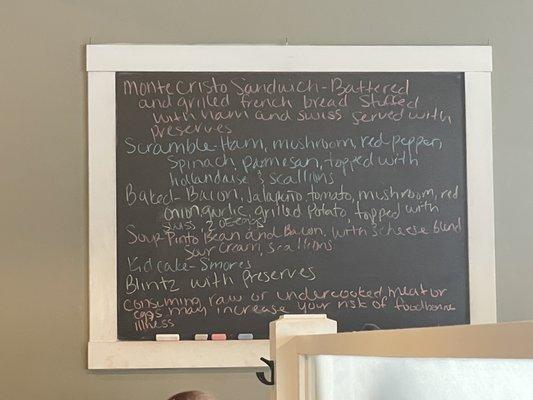 Monte Cristo Sandwich-Battered
and grilled french bread stuffed
with ham and swiss served with
preserves
Scramble-Ham, mushroom, red pepper,
Spinach, parmesan, topped with
Hollandaise & scallions
Baked-Bacon, Jalapeño, tomato, mushroom, red
onion, garlic, grilled potato, topped with
swiss, 2 eggs
Soup-Pinto Bean and Bacon, with 3 cheese blend
sour cream, scallions
Kid cake-Smores
Blintz with Preserves
Consuming raw or undercooked meat or
eggs may increase your risk of foodborne
illness